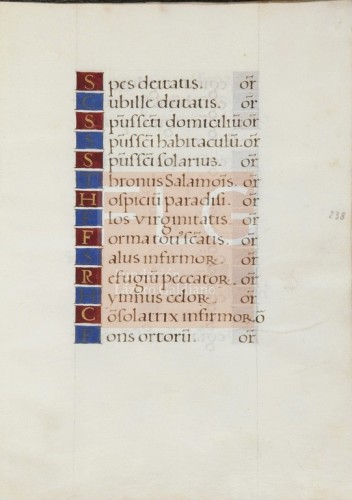 Spes deitatis. or̃
Cubille deitatis. or̃
Spũsseti domiciliũ or̃
Spũsscĩ habitaculũ. or̃
Spũsscĩ solarius. or̃
Thronus Salamoĩs. or
Hospiciũ paradisi. or̃
Flos virginitatis. or̃
Forma totiꝰ scãtis. or̃
Salus infirmoꝝ. or̃
Refugiũ peccatoꝝ. or̃
Hymnus celoꝝ. or̃
Cõsolatrix infirmoꝝ. õ
Fons ortorũ. or̃
238